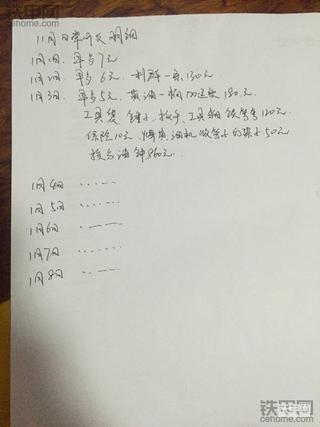 铁甲网
11月日常开支明细
1月1日. 早点7元
1月2日. 早点6元. 一条 130元
1月3日. 早点5元. 黄油一桶 加 130元.
工具袋 锤子. 扳手. 工具箱 130元
保险10元. 柴油机 管子的架子50元
油钟860元.
1月4日 ......
1月5日 ......
1月6日 ......
1月7日 ......
1月8日 ......
铁甲网